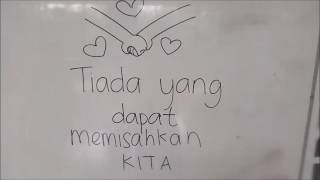 Tiada yang
dapat
memisahkan
KITA